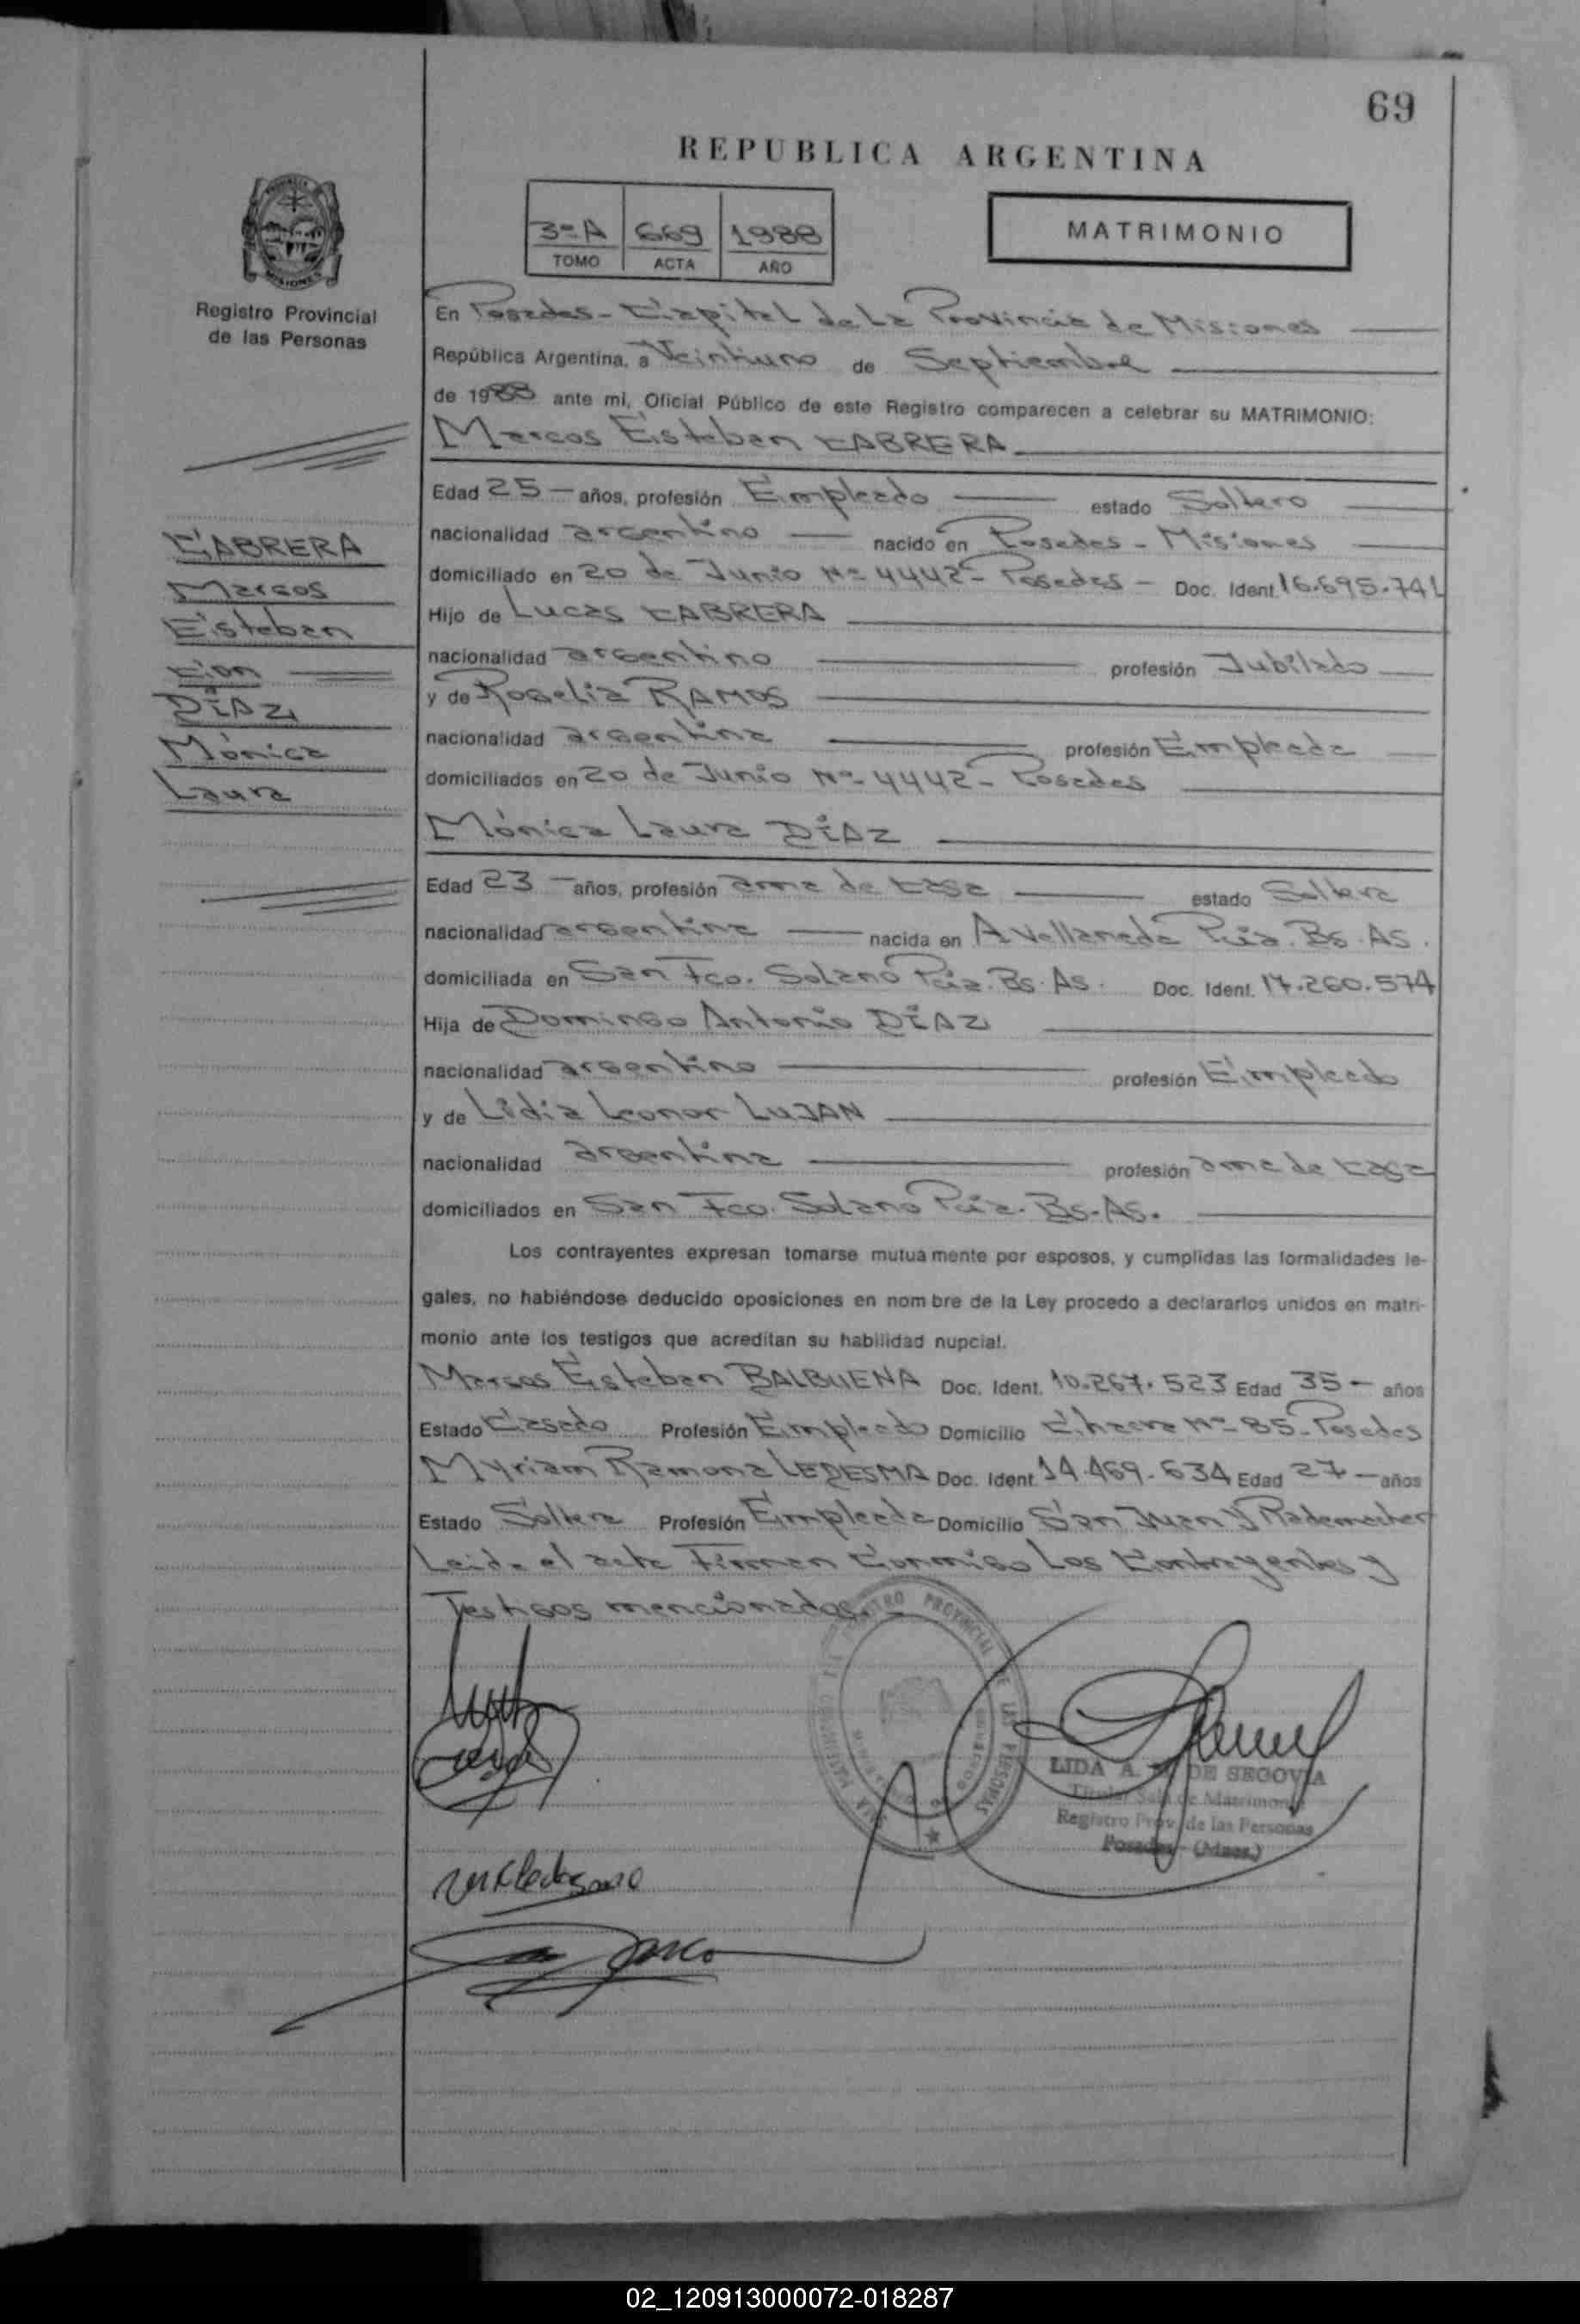 69
REPUBLICA ARGENTINA
3º A 669 1988
TOMO ACTA AÑO
MATRIMONIO
Registro Provincial
de las Personas
En Posadas - Capital de La Provincia de Misiones
República Argentina, a Veintiuno de Septiembre
de 1988 ante mi, Oficial Público de este Registro comparecen a celebrar su MATRIMONIO:
Marcos Esteban CABRERA
Edad 25 años, profesión Empleado estado Soltero
nacionalidad argentino nacido en Posadas - Misiones
domiciliado en 20 de Junio Nº 4442 - Posadas - Doc. Ident. 16.695.741
Hijo de Lucas CABRERA
nacionalidad argentino profesión Jubilado
y de Rogelia RAMOS
nacionalidad argentina profesión Empleada
domiciliados en 20 de Junio Nº 4442 - Posadas
CABRERA
Marcos
Esteban
Con
DÍAZ
Mónica
Laura
Mónica Laura DÍAZ
Edad 23 años, profesión ama de casa estado Soltera
nacionalidad argentina nacida en Avellaneda Pcia. Bs. As.
domiciliada en San Fco. Solano Pcia. Bs. As. Doc. Ident. 17.260.574
Hija de Domingo Antonio DÍAZ
nacionalidad argentino profesión Empleado
y de Lidia Leonor LUJAN
nacionalidad argentina profesión ama de casa
domiciliados en San Fco. Solano Pcia. Bs. As.
Los contrayentes expresan tomarse mutuamente por esposos, y cumplidas las formalidades le-
gales, no habiéndose deducido oposiciones en nombre de la Ley procedo a declararlos unidos en matri-
monio ante los testigos que acreditan su habilidad nupcial.
Marcos Esteban BALBUENA Doc. Ident. 10.267.523 Edad 35 - años
Estado Casado Profesión Empleado Domicilio Chacra Nº 85 - Posadas
Myriam Ramona LEDESMA Doc. Ident. 14.469.634 Edad 27 - años
Estado Soltera Profesión Empleada Domicilio San Juan y Rademacher
Leida el acta Firman Conmigo Los Contrayentes y
Testigos mencionados.-
REGISTRO PROVINCIAL DE LAS PERSONAS
LIDA A. DE SEGOVIA
Titular Sala de Matrimonio
Registro Prov. de las Personas
Posadas - (Mnes.)
02_120913000072-018287